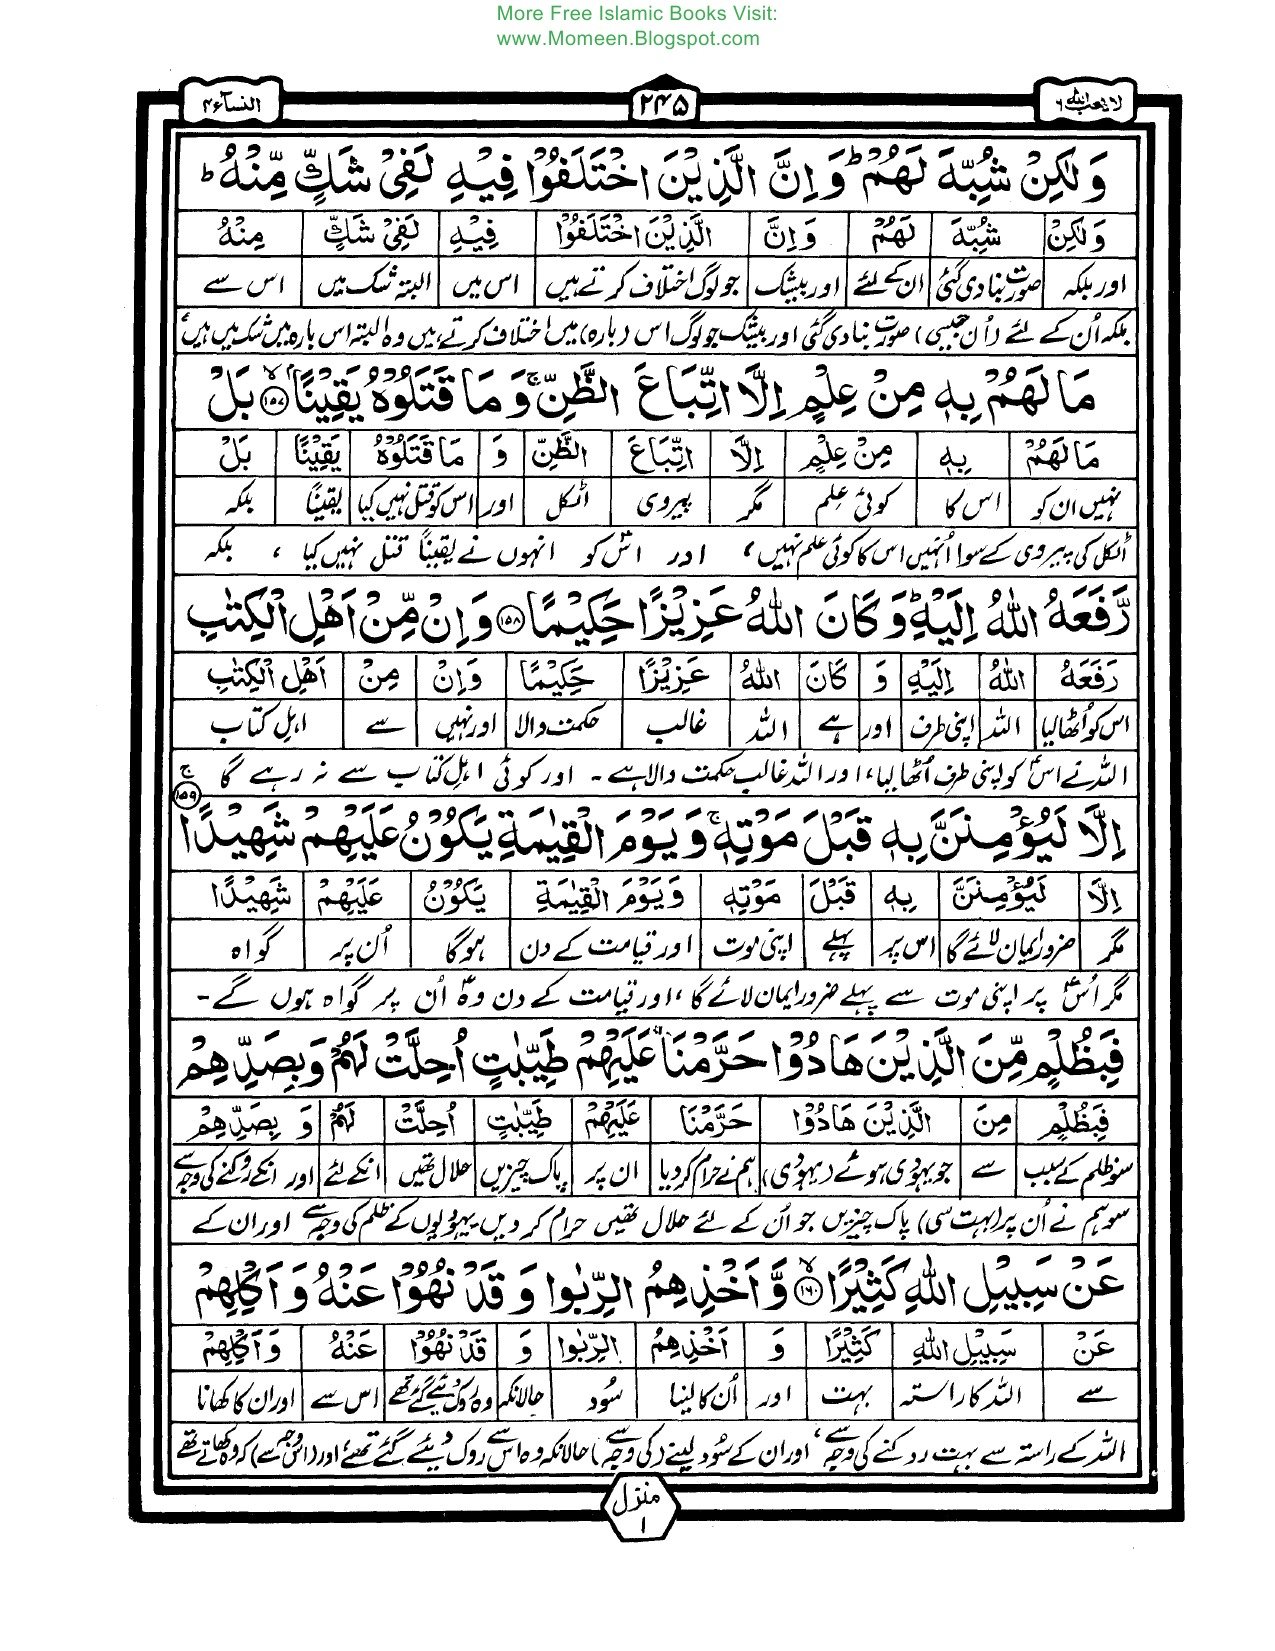 More Free Islamic Books Visit:
www.Momeen.Blogspot.com
لا یحب اللہ ۶
۲۴۵
النسآء ۴
وَلٰكِنْ شُبِّهَ لَهُمْ ؕ وَاِنَّ الَّذِيْنَ اخْتَلَفُوْا فِيْهِ لَفِيْ شَكٍّ مِّنْهُ ؕ
وَلٰكِنْ شُبِّهَ لَهُمْ وَاِنَّ الَّذِيْنَ اخْتَلَفُوْا فِيْهِ لَفِيْ شَكٍّ مِنْهُ
اور بلکہ صورت بنا دی گئی ان کے لئے اور بیشک جو لوگ اختلاف کرتے ہیں اس میں البتہ شک میں اس سے
بلکہ اُن کے لئے (اُن جیسی) صورت بنا دی گئی اور بیشک جو لوگ اس (بارہ) میں اختلاف کرتے ہیں وہ البتہ اس بارہ میں شک میں ہیں،
مَا لَهُمْ بِهٖ مِنْ عِلْمٍ اِلَّا اتِّبَاعَ الظَّنِّ ۚ وَمَا قَتَلُوْهُ يَقِيْنًا ۙ ﴿۱۵۷﴾ بَلْ
مَا لَهُمْ بِهٖ مِنْ عِلْمٍ اِلَّا اتِّبَاعَ الظَّنِّ وَ مَا قَتَلُوْهُ يَقِيْنًا بَلْ
نہیں ان کو اس کا کوئی علم مگر پیروی اٹکل اور اس کو قتل نہیں کیا یقیناً بلکہ
اٹکل کی پیروی کے سوا اُنہیں اس کا کوئی علم نہیں، اور اسؑ کو انہوں نے یقیناً قتل نہیں کیا ، بلکہ
رَّفَعَهُ اللّٰهُ اِلَيْهِ ؕ وَكَانَ اللّٰهُ عَزِيْزًا حَكِيْمًا ﴿۱۵۸﴾ وَاِنْ مِّنْ اَهْلِ الْكِتٰبِ
رَفَعَهُ اللّٰهُ اِلَيْهِ وَ كَانَ اللّٰهُ عَزِيْزًا حَكِيْمًا وَاِنْ مِنْ اَهْلِ الْكِتٰبِ
اس کو اُٹھا لیا اللہ اپنی طرف اور ہے اللہ غالب حکمت والا اور نہیں سے اہلِ کتاب
اللہ نے اسؑ کو اپنی طرف اُٹھا لیا، اور اللہ غالب حکمت والا ہے - اور کوئی اہلِ کتاب سے نہ رہے گا
اِلَّا لَيُؤْمِنَنَّ بِهٖ قَبْلَ مَوْتِهٖ ۚ وَيَوْمَ الْقِيٰمَةِ يَكُوْنُ عَلَيْهِمْ شَهِيْدًا ۚ ﴿۱۵۹﴾
اِلَّا لَيُؤْمِنَنَّ بِهٖ قَبْلَ مَوْتِهٖ وَيَوْمَ الْقِيٰمَةِ يَكُوْنُ عَلَيْهِمْ شَهِيْدًا
مگر ضرور ایمان لائے گا اس پر پہلے اپنی موت اور قیامت کے دن ہوگا اُن پر گواہ
مگر اُسؑ پر اپنی موت سے پہلے ضرور ایمان لائے گا، اور قیامت کے دن وہؑ اُن پر گواہ ہوں گے -
فَبِظُلْمٍ مِّنَ الَّذِيْنَ هَادُوْا حَرَّمْنَا عَلَيْهِمْ طَيِّبٰتٍ اُحِلَّتْ لَهُمْ وَبِصَدِّهِمْ
فَبِظُلْمٍ مِنَ الَّذِيْنَ هَادُوْا حَرَّمْنَا عَلَيْهِمْ طَيِّبٰتٍ اُحِلَّتْ لَهُمْ وَ بِصَدِّهِمْ
سو ظلم کے سبب سے جو یہودی ہوئے (یہودی) ہم نے حرام کر دیا ان پر پاک چیزیں حلال تھیں انکے لئے اور انکے روکنے کی وجہ سے
سو ہم نے اُن پر (بہت سی) پاک چیزیں جو اُن کے لئے حلال تھیں حرام کر دیں یہودیوں کے ظلم کی وجہ سے اور ان کے
عَنْ سَبِيْلِ اللّٰهِ كَثِيْرًا ۙ ﴿۱۶۰﴾ وَّاَخْذِهِمُ الرِّبٰوا وَقَدْ نُهُوْا عَنْهُ وَاَكْلِهِمْ
عَنْ سَبِيْلِ اللّٰهِ كَثِيْرًا وَ اَخْذِهِمُ الرِّبٰوا وَ قَدْ نُهُوْا عَنْهُ وَاَكْلِهِمْ
سے اللہ کا راستہ بہت اور اُن کا لینا سُود حالانکہ وہ روک دیئے گئے تھے اس سے اور ان کا کھانا
اللہ کے راستہ سے بہت روکنے کی وجہ سے، اور ان کے سُود لینے (کی وجہ سے) حالانکہ وہ اس سے روک دیئے گئے تھے اور (اس وجہ سے) کہ وہ کھاتے تھے
منزل ۱